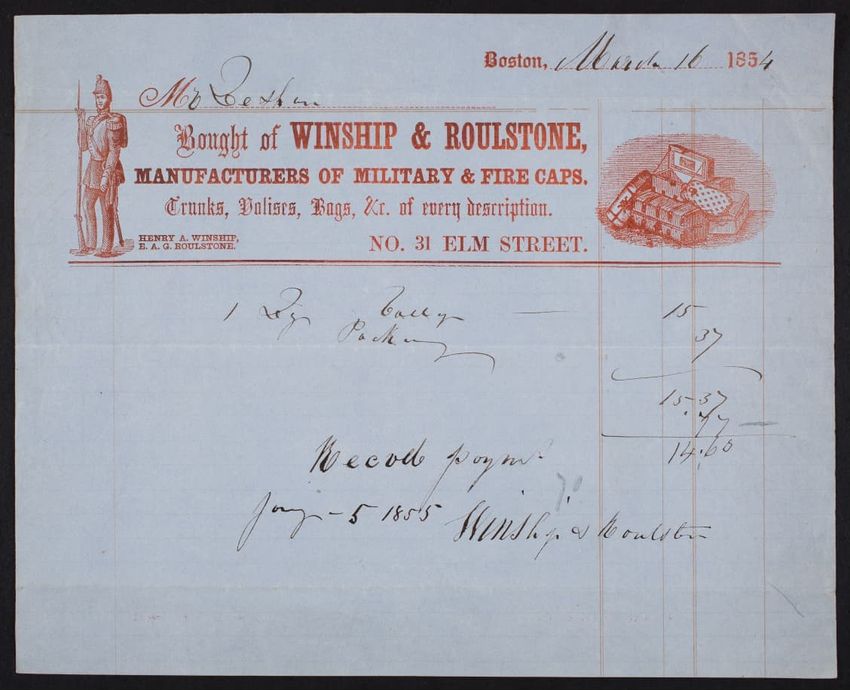 Boston, March 16 1854
Mr
Bought of WINSHIP & ROULSTONE,
MANUFACTURERS OF MILITARY & FIRE CAPS,
Trunks, Valises, Bags, &c. of every description.
HENRY A. WINSHIP,
E. A. G. ROULSTONE.
NO. 31 ELM STREET.
1 — 15
Packing 37
15 37
77
14.60
Recvd paymt
Jany 5 1855 Winship & Roulstone